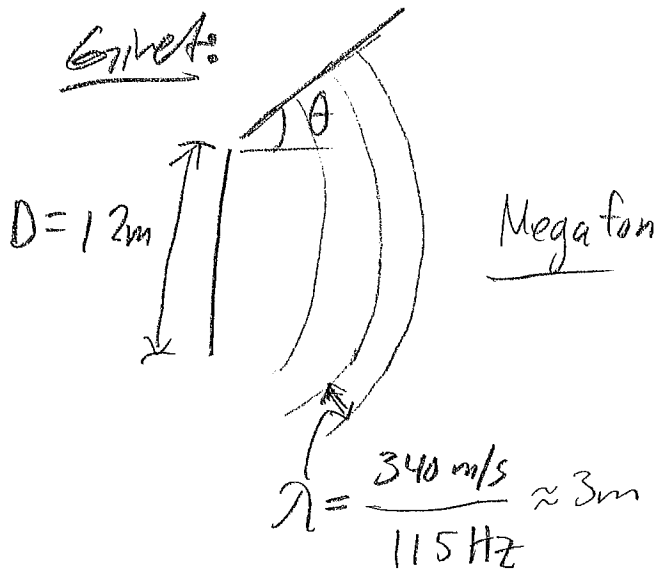 Givet:
θ
D = 12m
Megafon
λ = 340 m/s / 115 Hz ≈ 3m